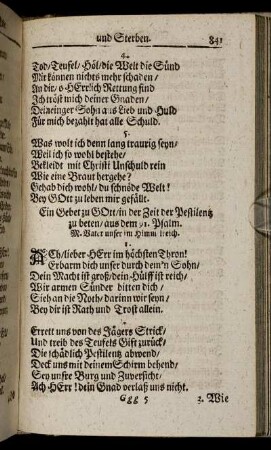 und Sterben. 841
4.
Tod/ Teufel/ Höl/ die Welt die Sünd
Mir können nichts mehr schaden/
An dir/ o HErr/ ich Rettung find
Ich tröst mich deiner Gnaden/
Dein einger Sohn aus Lieb und Huld
Für mich bezahlt hat alle Schuld.
5.
Was wolt ich denn lang traurig seyn/
Weil ich so wohl bestehe/
Bekleidt mit Christi Unschuld rein
Wie eine Braut hergehe?
Gehab dich wohl/ du schnöde Welt!
Bey GOtt zu leben mir gefällt.
Ein Gebet zu GOtt/ in der Zeit der Pestilentz
zu beten/ aus dem 91. Psalm.
M. Vater unser im Himmelreich.
1.
ACh/ lieber HErr im höchsten Thron!
Erbarm dich unser durch dein'n Sohn/
Dein Macht ist groß/ dein Hülff ist reich/
Wir armen Sünder bitten dich/
Sieh an die Noth/ darinn wir seyn/
Bey dir ist Rath und Trost allein.
Errett uns von des Jägers Strick/
Und treib des Teufels Gift zurück/
Die schädlich Pestilentz abwend/
Deck uns mit deinem Schirm behend/
Sey unsre Burg und Zuversicht/
Ach HErr! dein Gnad verlaß uns nicht.
Ggg 5 3. Wie